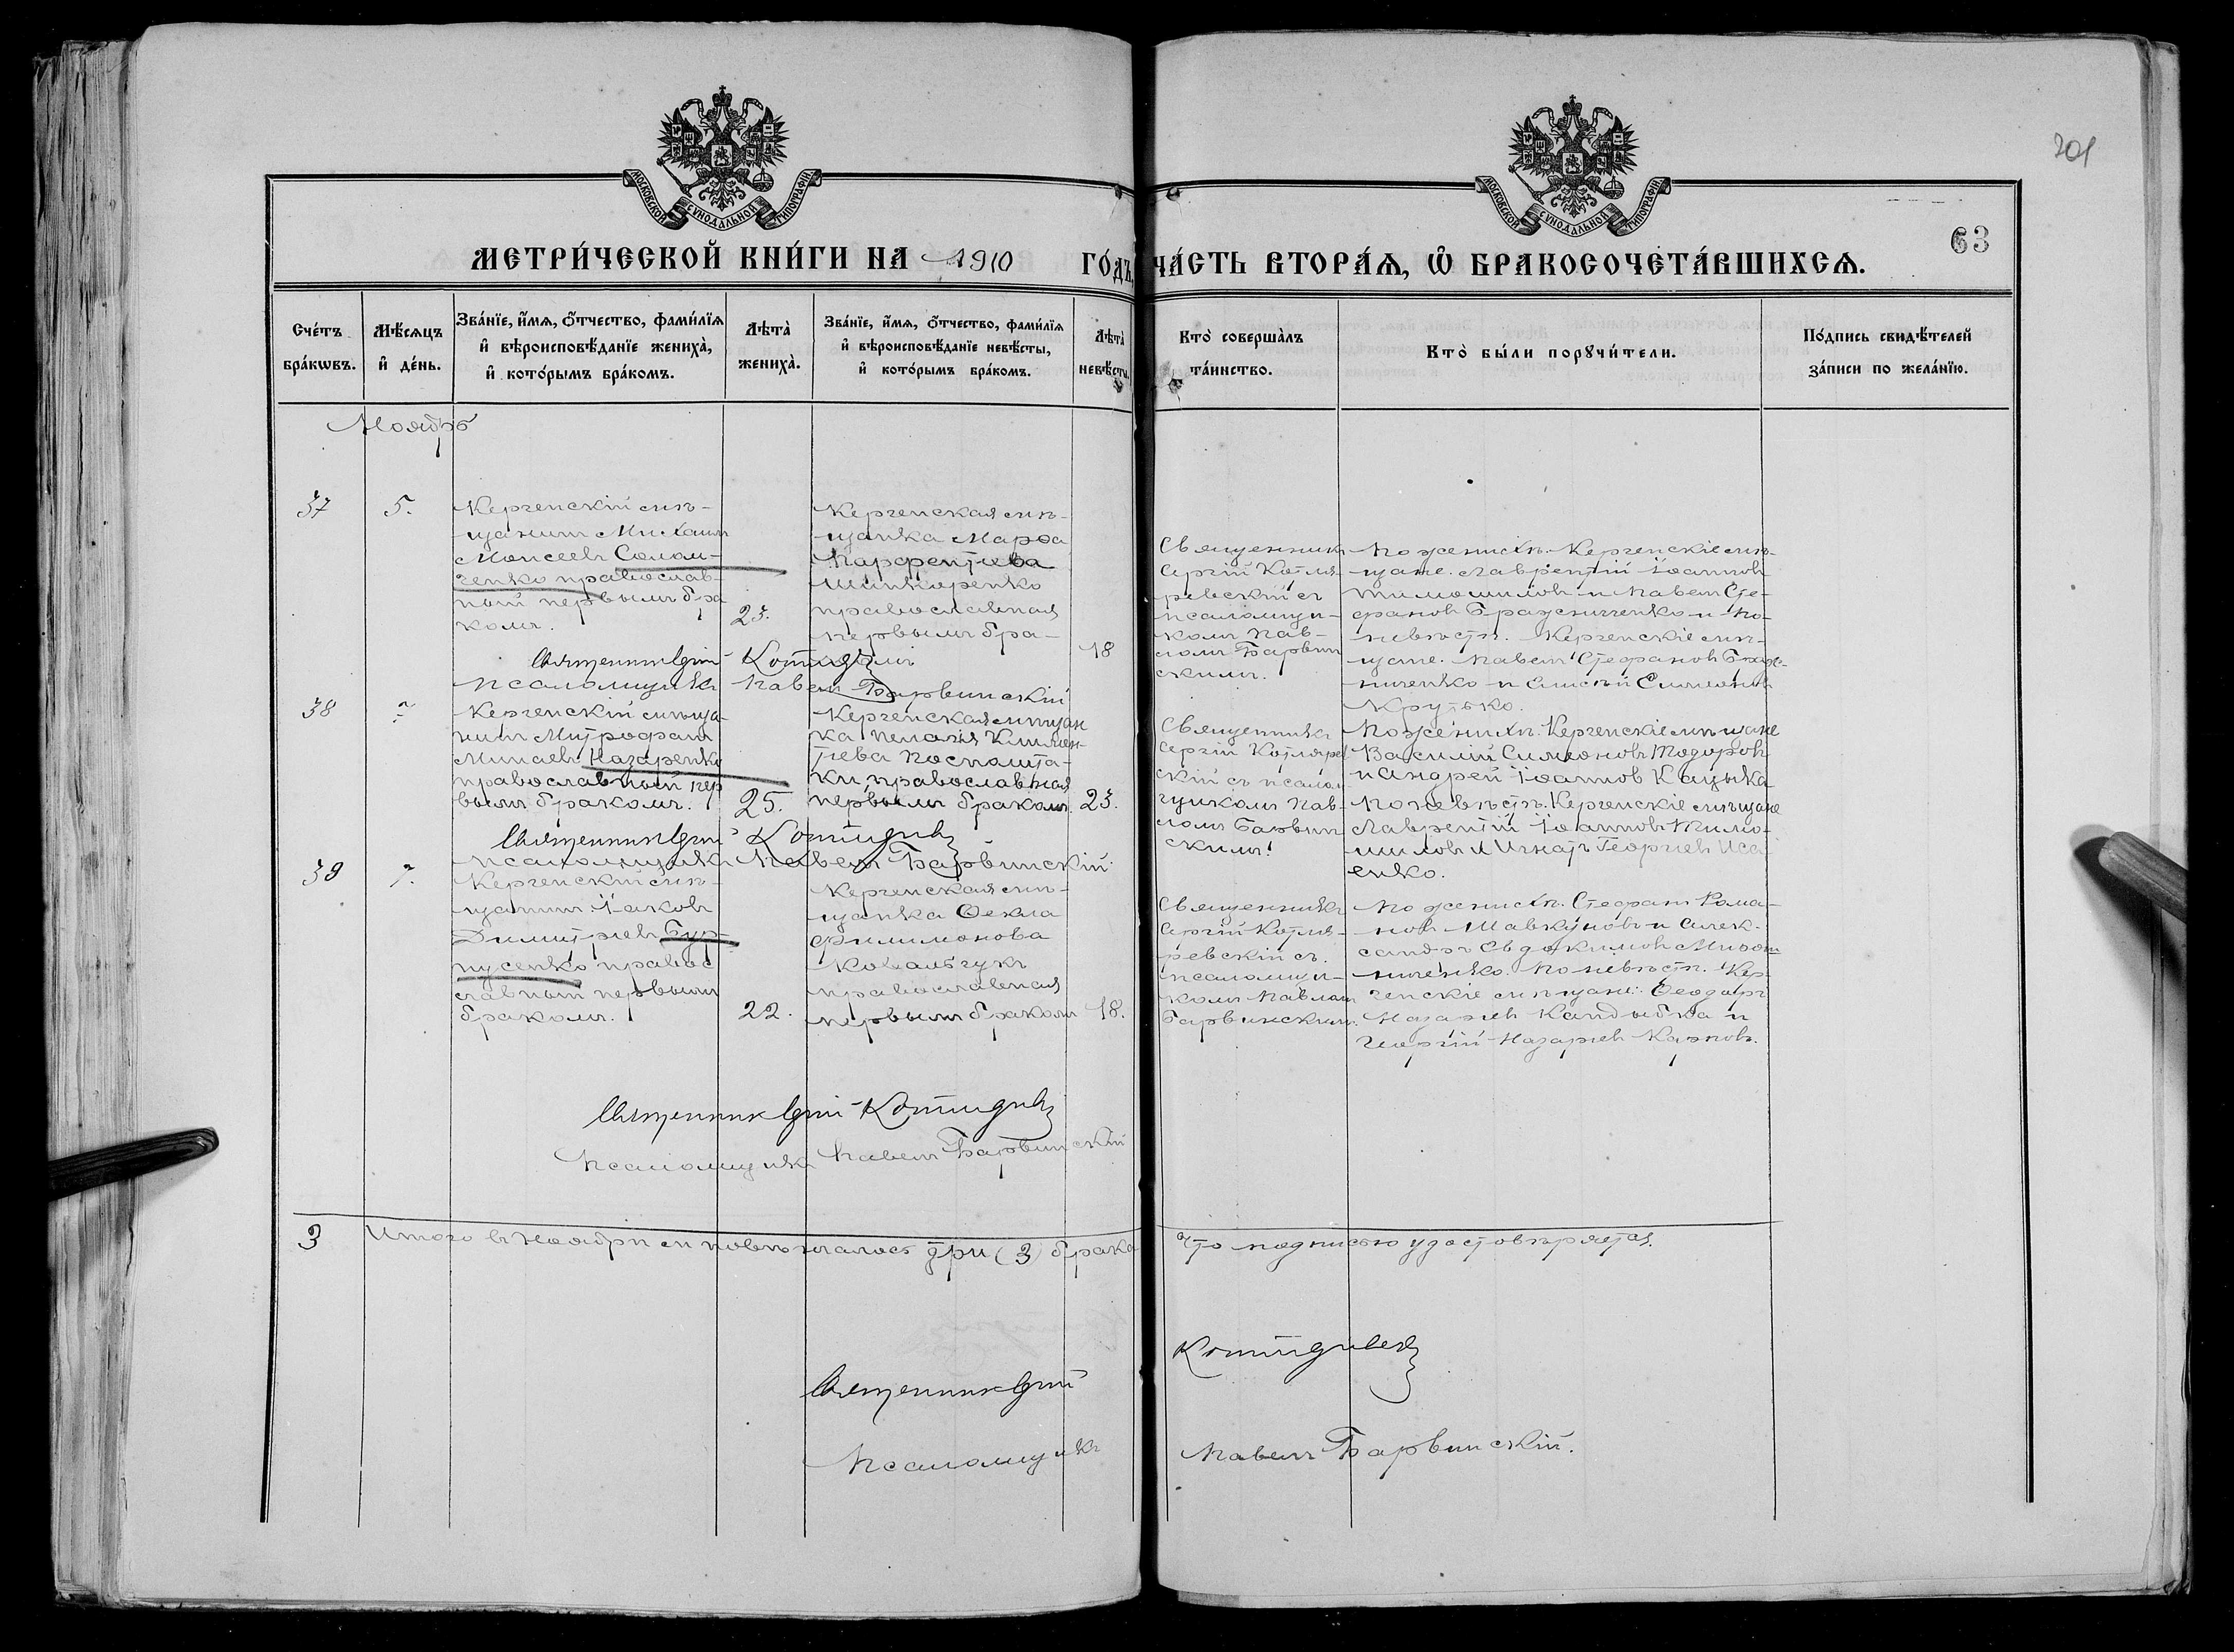 201
63
МОСКОВСКОЙ СѴНОДАЛЬНОЙ ТИПОГРАФІИ
МОСКОВСКОЙ СѴНОДАЛЬНОЙ ТИПОГРАФІИ
МЕТРИ́ЧЕСКОЙ КНИ́ГИ НА 1910 ГО́ДЪ, ЧА́СТЬ ВТОРА́Я, Ѡ҆ БРАКОСОЧЕТА́ВШИХСЯ.
Сче́тъ бра́кѡвъ.
Мѣ́сяцъ и҆ де́нь.
Зва́нїе, и҆́мя, ѻ҆́тчество, фами́лїя
и҆ вѣроисповѣ́данїе жениха̀,
и҆ кото́рымъ бра́комъ.
Лѣта̀ жениха̀.
Зва́нїе, и҆́мя, ѻ҆́тчество, фами́лїя
и҆ вѣроисповѣ́данїе невѣ́сты,
и҆ кото́рымъ бра́комъ.
Лѣта̀ невѣ́сты.
Кто̀ соверша́лъ
та́инство.
Кто̀ бы́ли порꙋчи́тели.
По́дпись свидѣ́телей
за́писи по жела́нїю.
Ноябрь
37
5.
Керченскій мѣ-
щанинъ Михаилъ
Моисеевъ Солом-
ченко православ-
ный первымъ бра
комъ.
23.
Керченская мѣ-
щанка Марѳа
Парфентиева
Шинкоренко
православная
первымъ бра-
комъ
18
Священникъ
Сергій Котля-
ревскій съ
псаломщи-
комъ Пав-
ломъ Барвин
скимъ.
По женихѣ. Керченскіе мѣ-
щане. Лаврентій Іоанновъ
Тимошиловъ и Павелъ Сте-
фановъ Бражниченко и по
невѣстѣ. Керченскіе мѣ-
щане. Павелъ Стефановъ Браж-
ниченко и Симеоновъ
Крутько.
Священникъ Сергій Котляревскій
Псаломщикъ Павелъ Барвинскій
38
7
Керченскій мѣща-
нинъ Митрофанъ
Минаевъ Назаренко
православный пер
вымъ бракомъ.
25.
Керченская мѣщан
ка Пелагія Климен-
тиева Поспашта-
ки православная
первымъ бракомъ
23.
Священникъ
Сергій Котлярев
скій съ псалом
щикомъ Пав-
ломъ Барвин
скимъ.
По женихѣ. Керченскіе мѣщане
Василій Симеоновъ Тодоровъ
и Андрей Іоанновъ Кацыка
По невѣстѣ. Керченскіе мѣщане
Лаврентій Іоанновъ Тимо-
шиловъ и Игнатъ Георгіевъ Иса
енко.
Священникъ Сергій Котляревскій
Псаломщикъ Павелъ Барвинскій
39
7.
Керченскій мѣ-
щанинъ Іаковъ
Димитріевъ Бур-
нусенко правос
лавный первымъ
бракомъ.
22.
Керченская мѣ-
щанка Ѳекла
Филимонова
Ковальчукъ
православная
первымъ бракомъ
18.
Священникъ
Сергій Котля-
ревскій съ
псаломщи-
комъ Павломъ
Барвинскимъ.
По женихѣ. Стефанъ Рома-
новъ Шавкуновъ и Алек-
сандръ Евдокимовъ
ниченко. По невѣстѣ. Кер-
ченскіе мѣщане: Ѳеодоръ
Назаріевъ Кандыбка и
Георгій Назаріевъ Карповъ.
Священникъ Сергій Котляревскій
Псаломщикъ Павелъ Барвинскій
3 Итого въ Ноябрѣ м повѣнчалось три (3) брака
Что подписью удостовѣряется.
Священникъ Сергій Котляревскій
Псаломщикъ Павелъ Барвинскій.